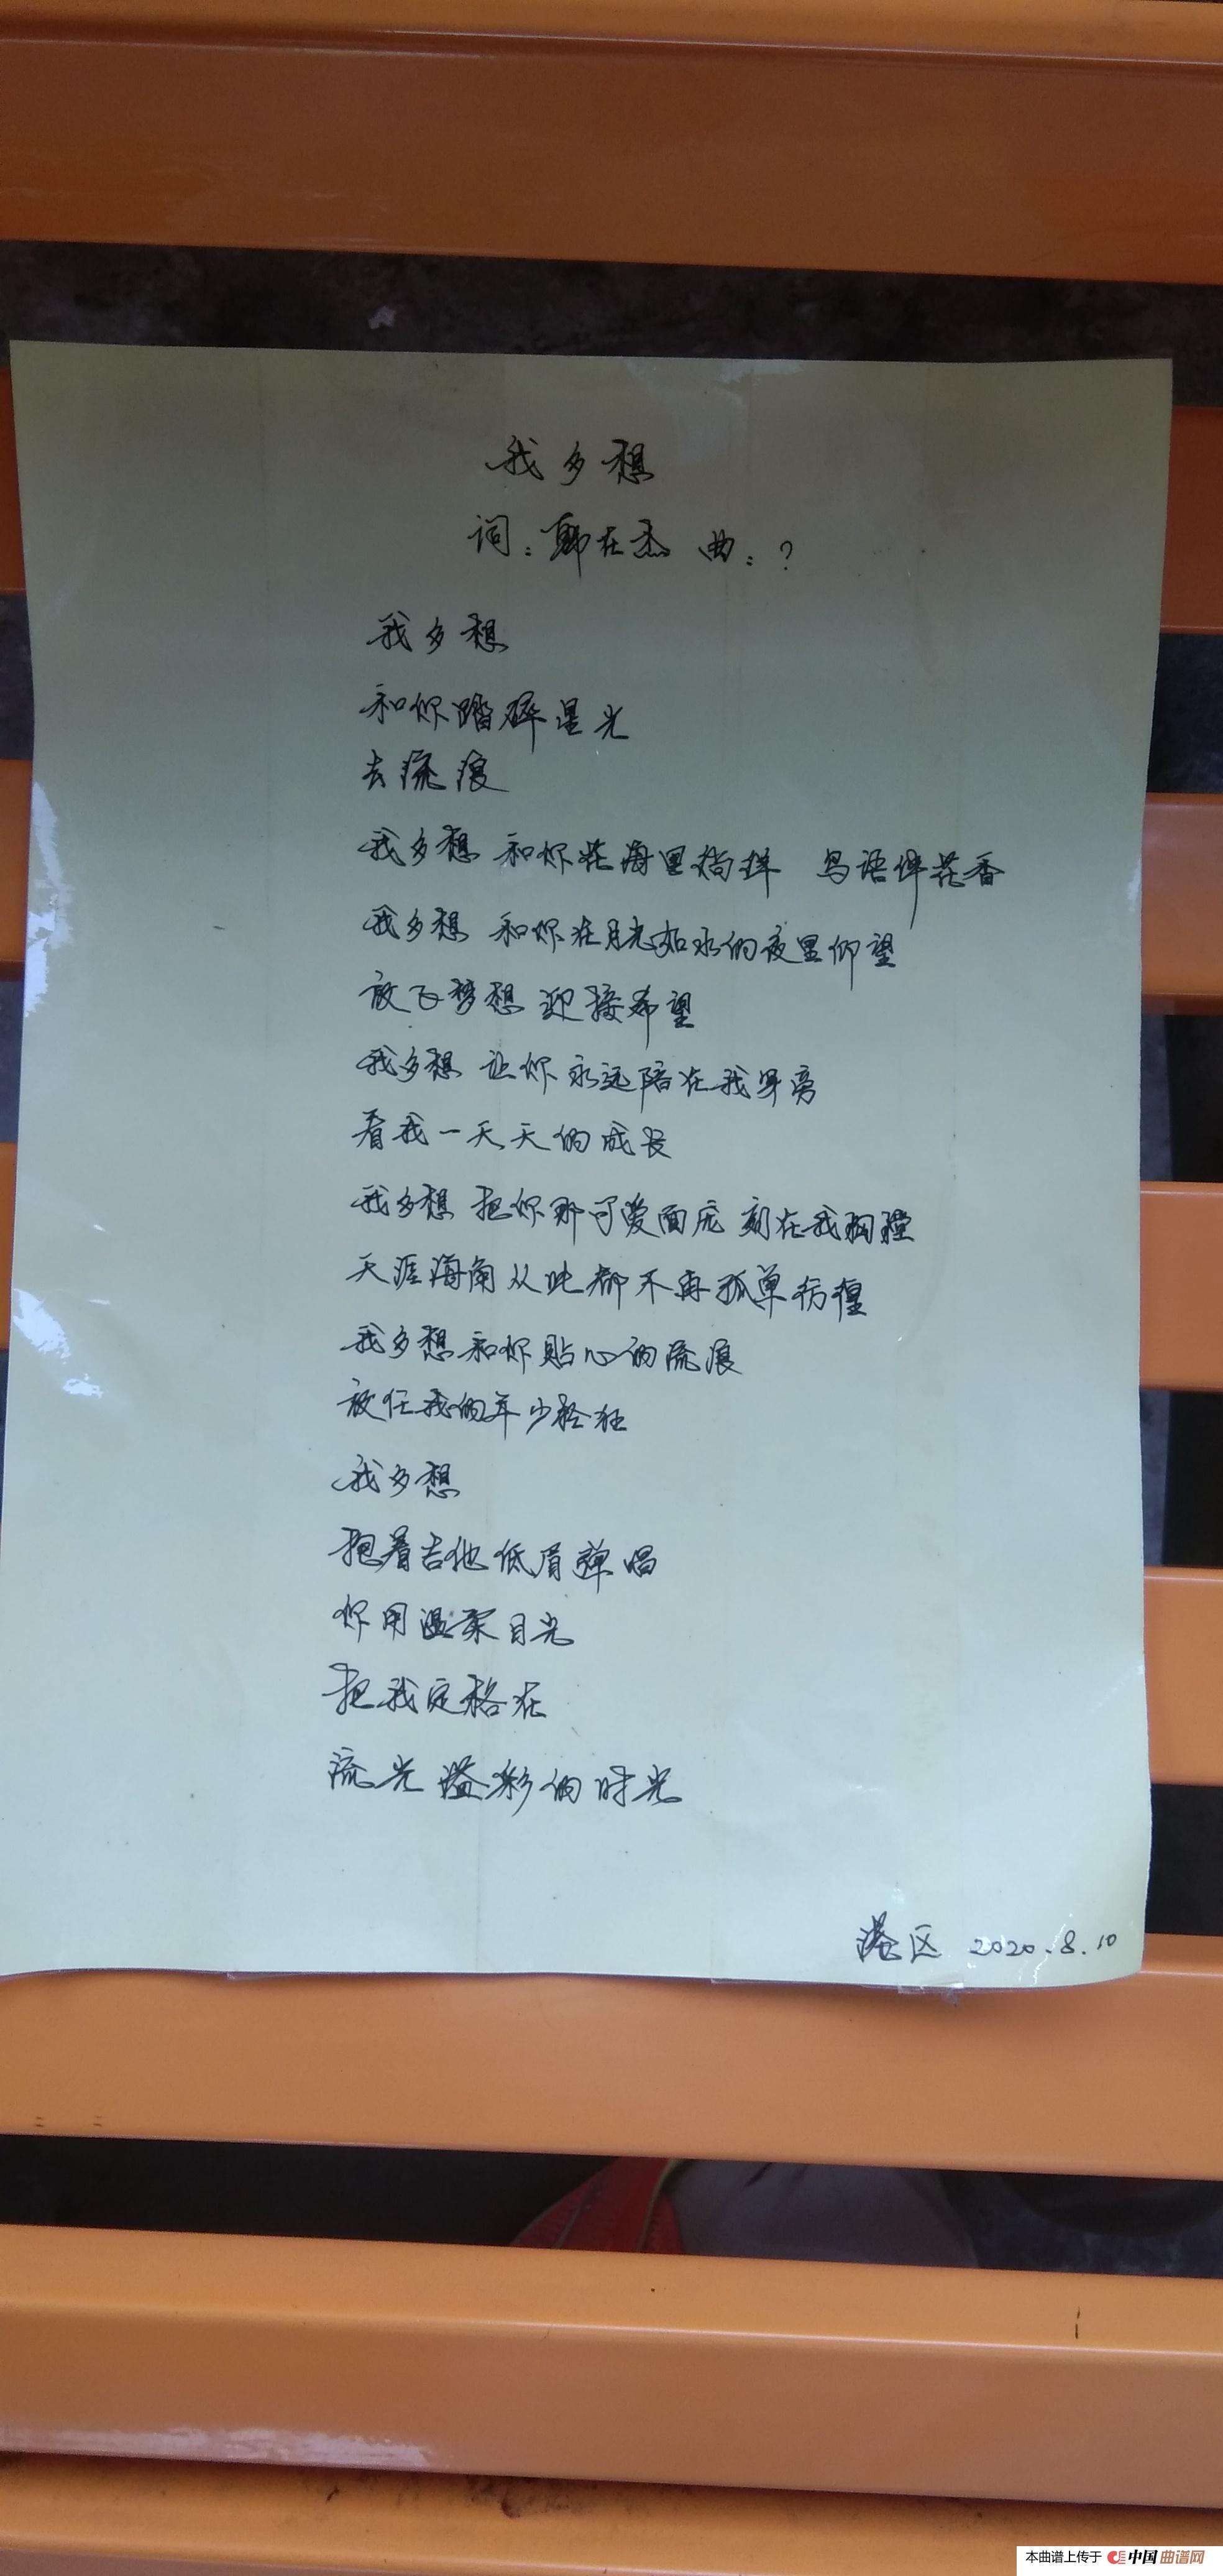 我多想
词：郭在杰 曲：？
我多想
和你踏碎星光
去流浪
我多想 和你花海里徜徉 鸟语伴花香
我多想 和你在月光如水的夜里仰望
放飞梦想 迎接希望
我多想 让你永远陪在我身旁
看我一天天的成长
我多想 把你那可爱面庞 刻在我胸膛
天涯海角从此都不再孤单彷徨
我多想和你贴心的流浪
放任我的年少轻狂
我多想
抱着吉他低眉弹唱
你用温柔目光
把我定格在
流光溢彩的时光
港区 2020.8.10
本曲谱上传于 中国曲谱网